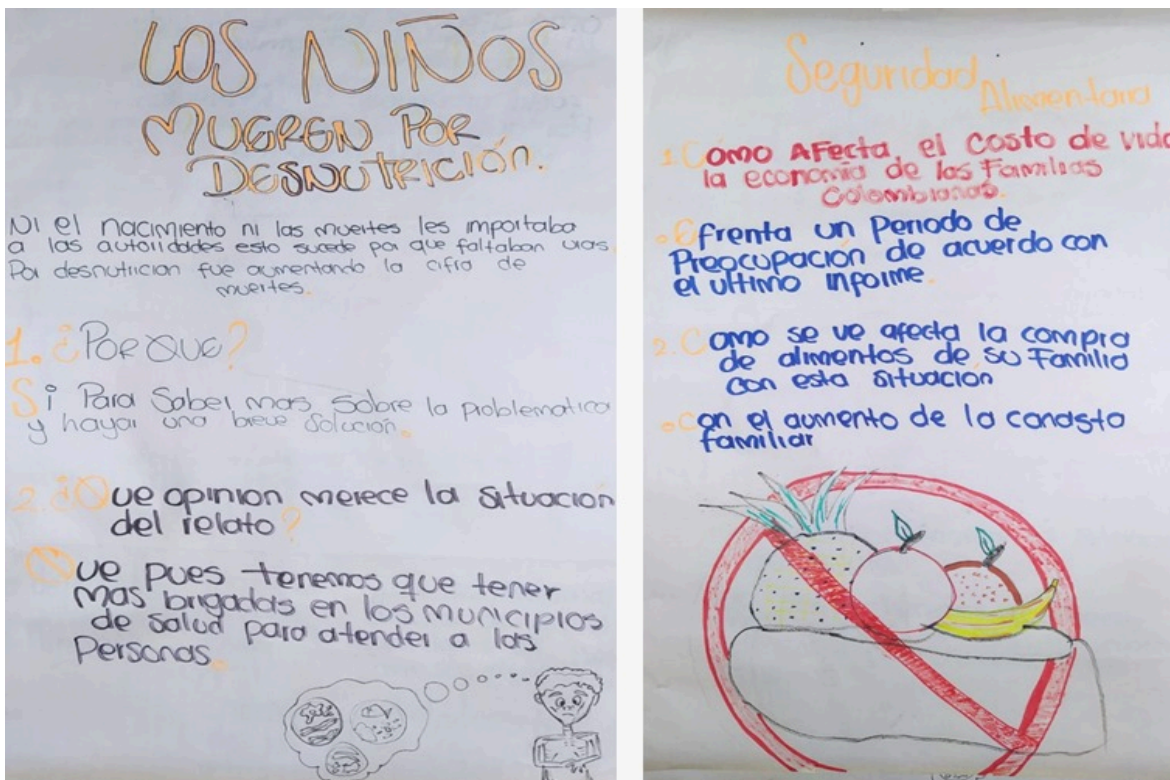 LOS NIÑOS
MUEREN POR
DESNUTRICIÓN.
Ni el nacimiento ni las muertes les importaba
a las autoridades esto sucede por que faltaban vias.
Por desnutricion fue aumentando la cifra de
muertes.
1. ¿POR QUE?
Si Para Saber mas sobre la problematica
y hayar una breve Solución.
2. ¿Que opinion merece la situacion
del relato?
Que pues tenemos que tener
mas brigadas en los municipios
de salud para atender a las
Personas.
Seguridad
Alimentaria
1. Como Afecta el costo de vida
la economía de las Familias
Colombianas.
• Efrenta un Periodo de
Preocupación de acuerdo con
el ultimo informe.
2. Como se ve afecta la compra
de alimentos de su Familia
con esta situacion
• Con el aumento de la canasta
familiar